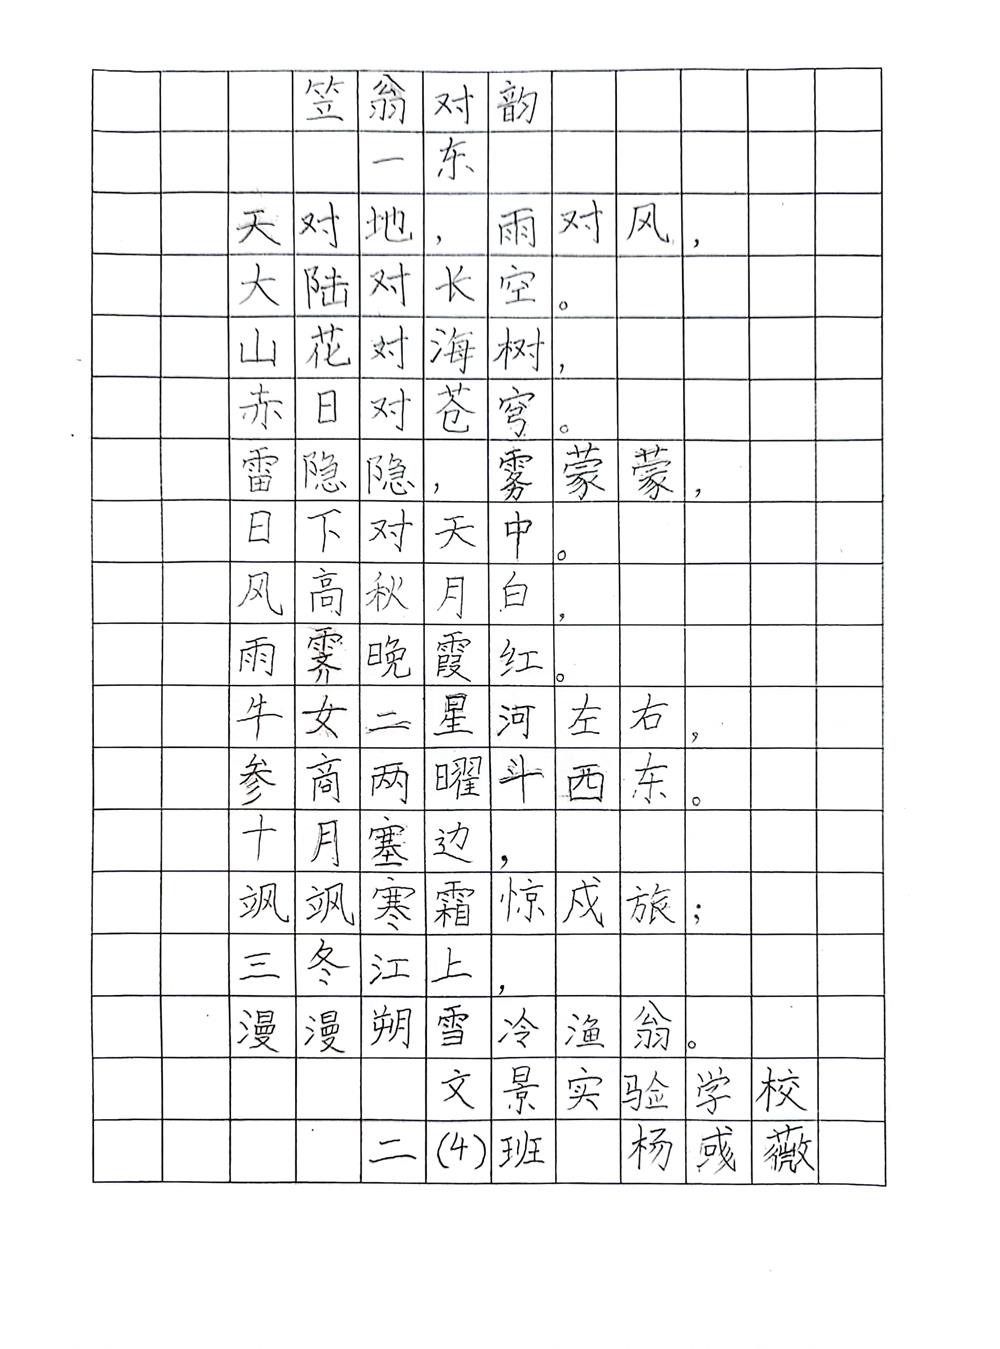 笠翁对韵
一东
天对地，雨对风，
大陆对长空。
山花对海树，
赤日对苍穹。
雷隐隐，雾蒙蒙，
日下对天中。
风高秋月白，
雨霁晚霞红。
牛女二星河左右，
参商两曜斗西东。
十月塞边，
飒飒寒霜惊戍旅；
三冬江上，
漫漫朔雪冷渔翁。
文景实验学校
二(4)班 杨彧薇